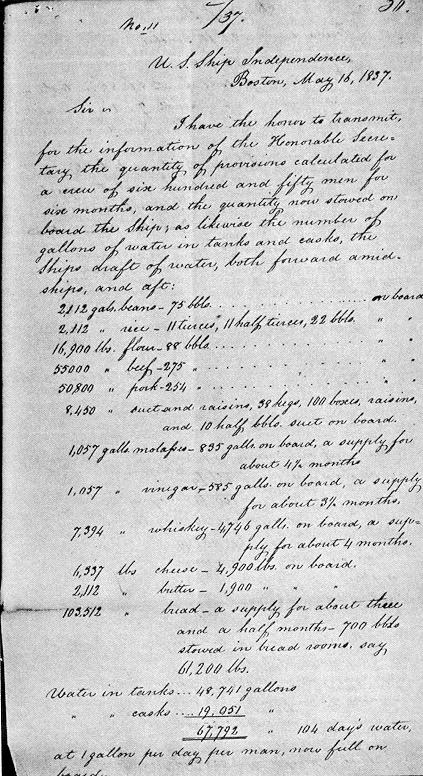 No. 11
/37.
U. S. Ship Independence,
Boston, May 16, 1837.
Sir
I have the honor to transmit,
for the information of the Honorable Secre-
tary, the quantity of provisions calculated for
a crew of six hundred and fifty men for
six months, and the quantity now stowed on
board the Ship; as likewise the number of
gallons of water in tanks and casks, the
Ships draft of water, both forward amid-
ships, and aft:
2,112 gals. beans - 75 bbls. on board
2,112 " rice - 11 tierces, 11 half tierces, 22 bbls. " "
16,900 lbs. flour - 88 bbls. " "
55000 " beef - 275 " " "
50,800 " pork - 254 " " "
8,450 " suet and raisins, 38 kegs, 100 boxes, raisins,
and 10 half bbls. suet on board.
1,057 galls. molasses - 835 galls. on board, a supply for
about 4¾ months
1,057 " vinegar, - 585 galls. on board, a supply
for about 3½ months.
7,394 " whiskey - 4746 galls. on board, a sup-
ply for about 4 months.
6,337 lbs cheese - 4,900 lbs. on board.
2,112 " butter - 1,900 " " "
103,512 " bread - a supply for about three
and a half months - 700 bbls
stowed in bread rooms, say
61,200 lbs.
Water in tanks ... 48,741 gallons
" " casks .... 19,051 "
67,792 " 104 day's water,
at 1 gallon per day per man, now full on
board.